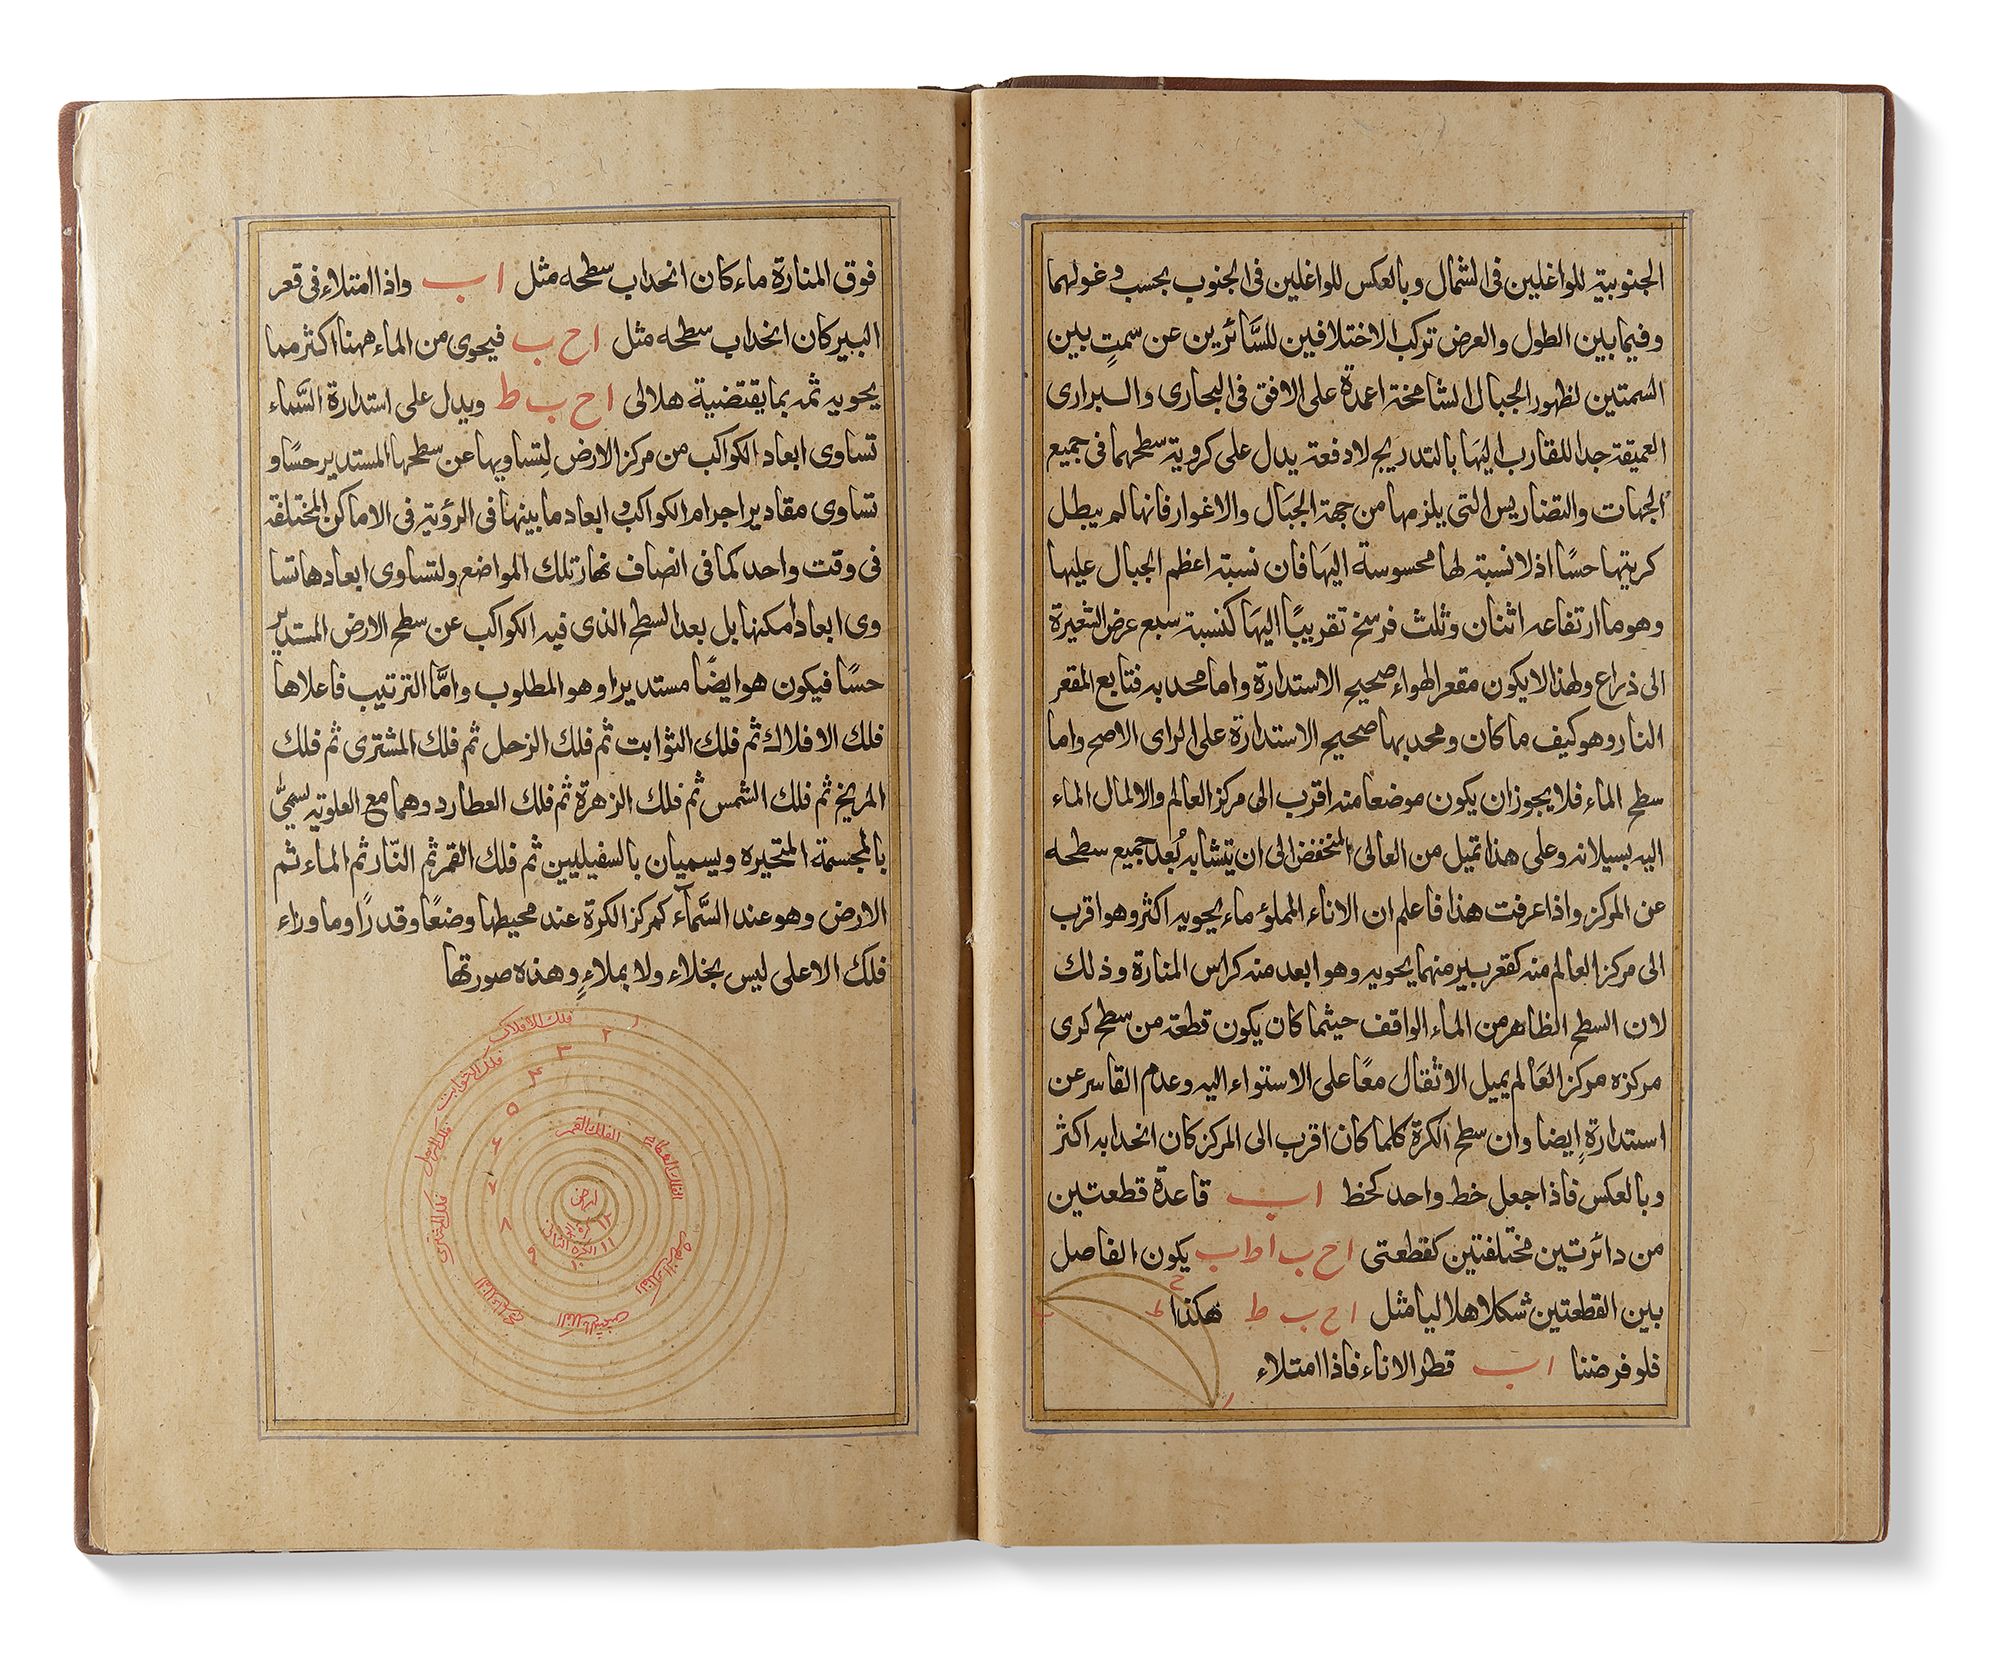 الجنوبية للواغلين فى الشمال وبالعكس للواغلين فى الجنوب بحسب وغولهما
وفيما بين الطول والعرض تركب الاختلافين للسَّائرين عن سمتٍ بين
السمتين لظهور الجبال الشامخة اعمدة على الافق فى البحارى والبرارى
العميقة جدا للمقارب اليَها بالتدريج لا دفعة يدل على كروية سطحهما فى جميع
الجهات والتضاريس التى يلزمها من جهة الجبَال والاغوار فانها لم يبطل
كريتها حسًا اذ لا نسبة لها محسوسة اليَها فان نسبة اعظم الجبال عليها
وهو ما ارتفاعه اثنان وثلث فرسخ تقريبًا اليهَا كنسبة سبع عرض الشعيرة
الى ذراع ولهذا لا يكون مقعر الهواء صحيح الاستدارة واما محدبه فتابع المقعر
النار وهو كيف ما كان ومحدبها صحيح الاستدارة على الراى الاصح واما
سطح الماء فلا يجوز ان يكون موضعا منه اقرب الى مركز العالم والا لمال الماء
اليه بسيلانه وعلى هذا تميل من العالى المنخفض الى ان يتشابه بُعد جميع سطحه
عن المركز واذا عرفت هذا فاعلم ان الاناء المملؤ ماء يحويه اكثر وهو اقرب
الى مركز العالم منه كقعر بير منهما يحويه وهو ابعد منه كراس المنارة وذلك
لان السطح الظاهر من الماء الواقف حيثما كان يكون قطعة من سطح كرى
مركزه مركز العَالم يميل الاثقال معًا على الاستواء اليه وعدم القاسر عن
استدارةٍ ايضا وان سطح الكرة كلما كان اقرب الى المركز كان انحدابه اكثر
وبالعكس فاذا جعل خط واحد كخط ا ب قاعدة قطعتين
من دائرتين مختلفتين كقطعتى ا ح ب ا ط ا ب يكون الفاصل
بين القطعتين شكلا هلاليا مثل ا ح ب ط هكذا
فلو فرضنا ا ب قطر الاناء فاذا امتلاء
ح
ط
ب
ا
فوق المنارة ماء كان انحداب سطحه مثل ا ب واذا امتلاء فى قعر
البير كان انحداب سطحه مثل ا ح ب فيحوى من الماء ههنا اكثر مما
يحويه ثمه بما يقتضية هلالى ا ح ب ط ويدل على استدارة السَّماء
تساوى ابعاد الكواكب من مركز الارض لتساويها عن سطحها المستدير حسًا و
تساوى مقادير اجرام الكواكب و ابعاد ما بينها فى الرؤية فى الاماكن المختلفة
فى وقت واحد كما فى انصاف نهار تلك المواضع ولتساوى ابعادها تسا
وى ابعاد امكنها بل بعد السطح الذى فيه الكواكب عن سطح الارض المستدير
حسًا فيكون هو ايضًا مستديرا وهو المطلوب وامَّا الترتيب فاعلاها
فلك الافلاك ثم فلك الثوابت ثم فلك الزحل ثم فلك المشترى ثم فلك
المريخ ثم فلك الشمس ثم فلك الزهرة ثم فلك العطارد وهما مع العلوية يسمىّ
بالمجسمة المتحيره ويسميان بالسفيليين ثم فلك القمر ثم النّار ثم الماء ثم
الارض وهو عند السَّمآء كمركز الكرة عند محيطها وضعًا وقدرًا وما وراء
فلك الاعلى ليس بخلاء ولا بملاءٍ وهذه صورتها
فلك الافلاك
فلك الثوابت
فلك الزحل
فلك المشترى
الفلك المريخ
الفلك الشمس
الفلك الزهره
الفلك العطارد
الفلك القمر
١
٢
٣
۴
۵
۶
٧
٨
٩
١٠
١١
١٢